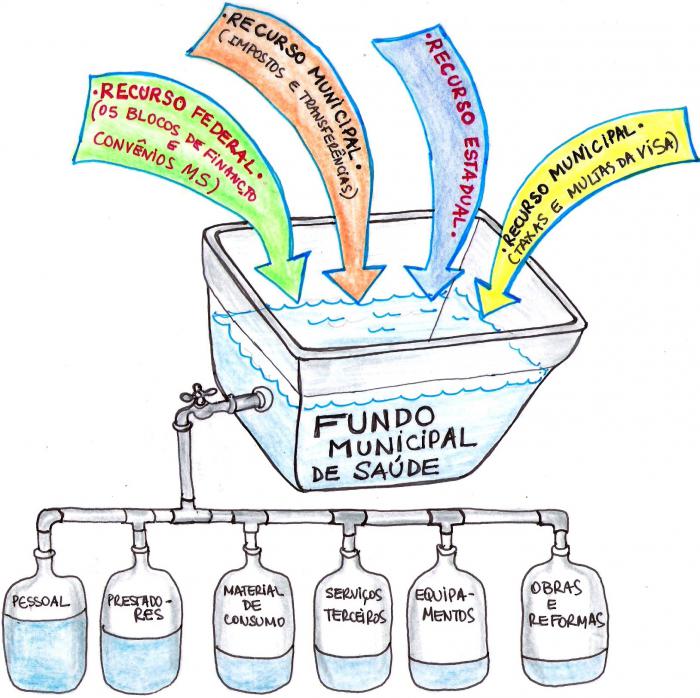 • RECURSO FEDERAL •
(05 BLOCOS DE FINANCTO
E
CONVÊNIOS MS)
• RECURSO MUNICIPAL •
(IMPOSTOS E TRANSFERÊNCIAS)
• RECURSO ESTADUAL •
• RECURSO MUNICIPAL •
(TAXAS E MULTAS DA VISA)
FUNDO
MUNICIPAL
DE SAÚDE
PESSOAL
PRESTADO-
RES
MATERIAL
DE
CONSUMO
SERVIÇOS
TERCEIROS
EQUIPA-
MENTOS
OBRAS
E
REFORMAS